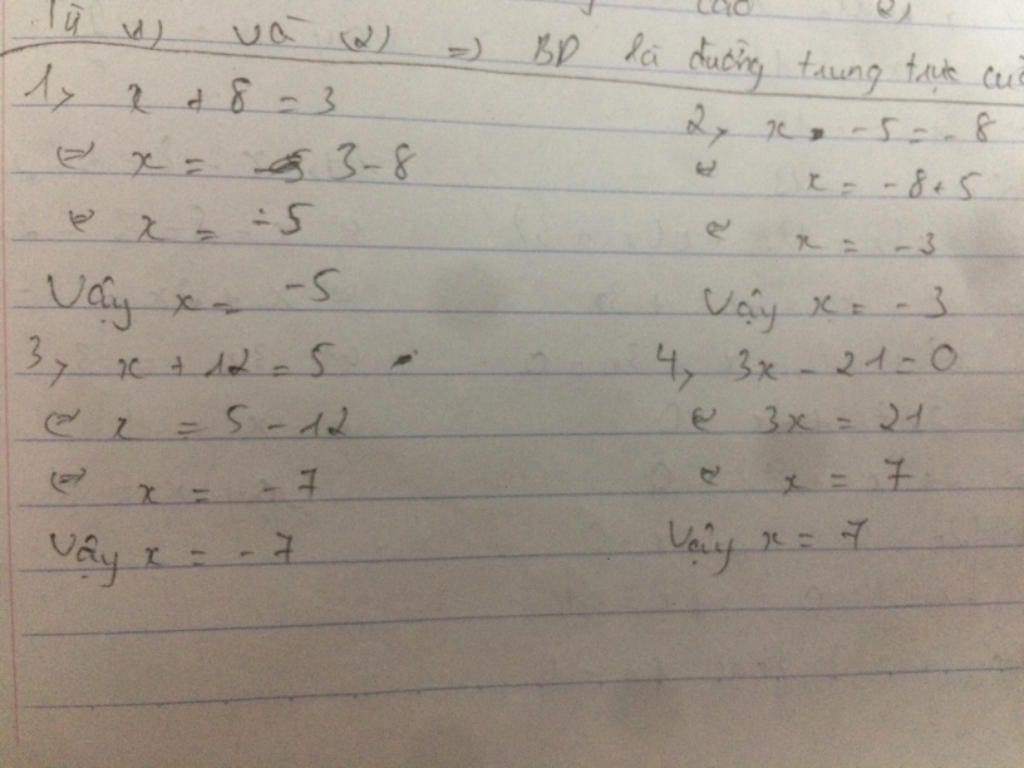 Từ (1) và (2) => BD là đường trung trực của
1, x + 8 = 3
⇔ x = 3-8
⇔ x = -5
Vậy x = -5
2, x -5 = -8
⇔ x = -8+5
⇔ x = -3
Vậy x = -3
3, x + 12 = 5
⇔ x = 5 - 12
⇔ x = -7
Vậy x = -7
4, 3x - 21 = 0
⇔ 3x = 21
⇔ x = 7
Vậy x = 7